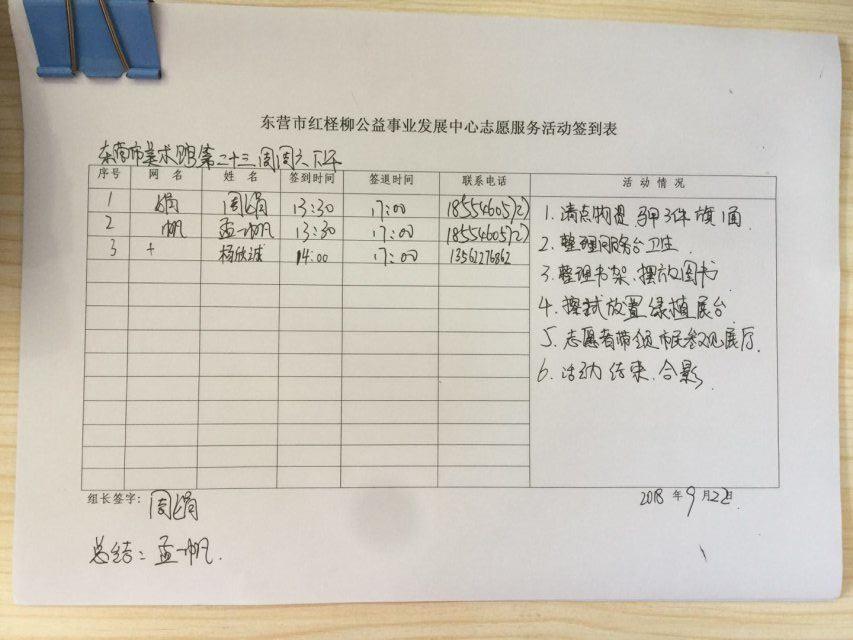 东营市红柽柳公益事业发展中心志愿服务活动签到表
东营市美术馆第二十三周周六下午
序号 网 名 姓 名 签到时间 签退时间 联系电话 活 动 情 况
1 娟 周娟 13:30 17:00
2 帆 孟一帆 13:30 17:00
3 + 杨欣诚 14:00 17:00 13562276862
1. 清点物品 马甲3件 旗1面
2. 整理服务台卫生
3. 整理书架、摆放图书
4. 擦拭放置绿植展台
5. 志愿者带领市民参观展厅.
6. 活动结束、合影
组长签字: 周娟
2018 年 9 月 22 日
总结: 孟一帆.